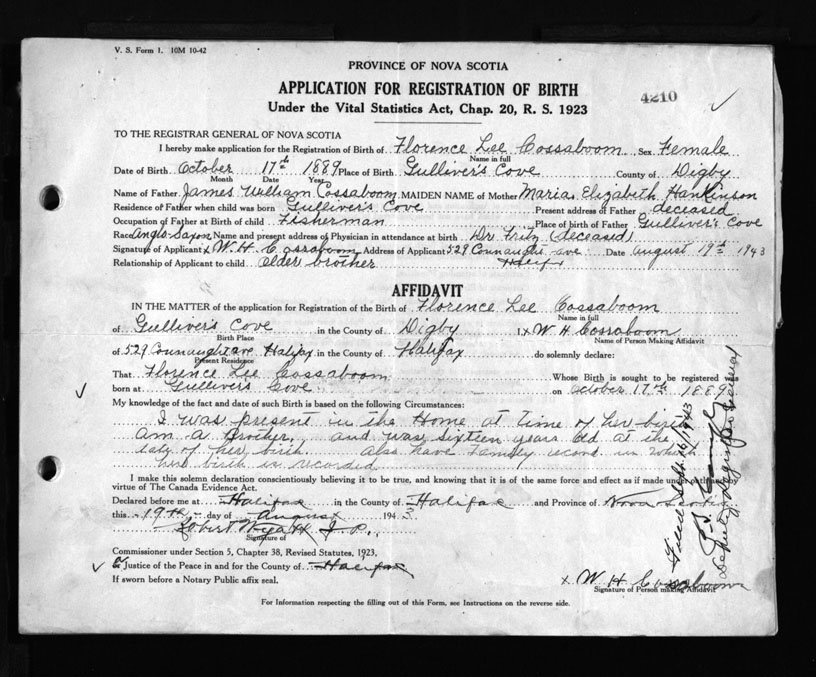 V. S. Form 1. 10M 10-42
PROVINCE OF NOVA SCOTIA
APPLICATION FOR REGISTRATION OF BIRTH
4210
Under the Vital Statistics Act, Chap. 20, R. S. 1923
TO THE REGISTRAR GENERAL OF NOVA SCOTIA
I hereby make application for the Registration of Birth of Florence Lee Cossaboom Sex Female
Name in full
Date of Birth October 17th 1889 Place of Birth Gulliver's Cove County of Digby
Month Date Year
Name of Father James William Cossaboom MAIDEN NAME of Mother Maria Elizabeth Hankinson
Residence of Father when child was born Gulliver's Cove Present address of Father deceased
Occupation of Father at Birth of child Fisherman Place of birth of Father Gulliver's Cove
Race Anglo-Saxon Name and present address of Physician in attendance at birth Dr Fritz (deceased)
Signature of Applicant x W. H. Cossaboom Address of Applicant 529 Connaught ave Date August 19th 1943
Relationship of Applicant to child Elder brother Halifax
AFFIDAVIT
IN THE MATTER of the application for Registration of the Birth of Florence Lee Cossaboom
Name in full
of Gulliver's Cove in the County of Digby I x W H Cossaboom
Birth Place Name of Person Making Affidavit
of 529 Connaught ave Halifax in the County of Halifax do solemnly declare:
Present Residence
That Florence Lee Cossaboom Whose Birth is sought to be registered was
born at Gulliver's Cove on October 17th 1889
My knowledge of the fact and date of such Birth is based on the following Circumstances:
I was present in the Home at time of her birth
am a brother. and was sixteen years old at the
day of her birth. also have family record in which
her birth is recorded
I make this solemn declaration conscientiously believing it to be true, and knowing that it is of the same force and effect as if made under oath
virtue of The Canada Evidence Act.
Declared before me at Halifax in the County of Halifax and Province of Nova Scotia
this 19th day of August 1943
Robert Wyatt J. P.
Signature of
Commissioner under Section 5, Chapter 38, Revised Statutes, 1923,
or Justice of the Peace in and for the County of Halifax
If sworn before a Notary Public affix seal.
x W H Cossaboom
Signature of Person making Affidavit
For Information respecting the filling out of this Form, see Instructions on the reverse side.
Filed Sept. 16/1943
Deputy Registrar General